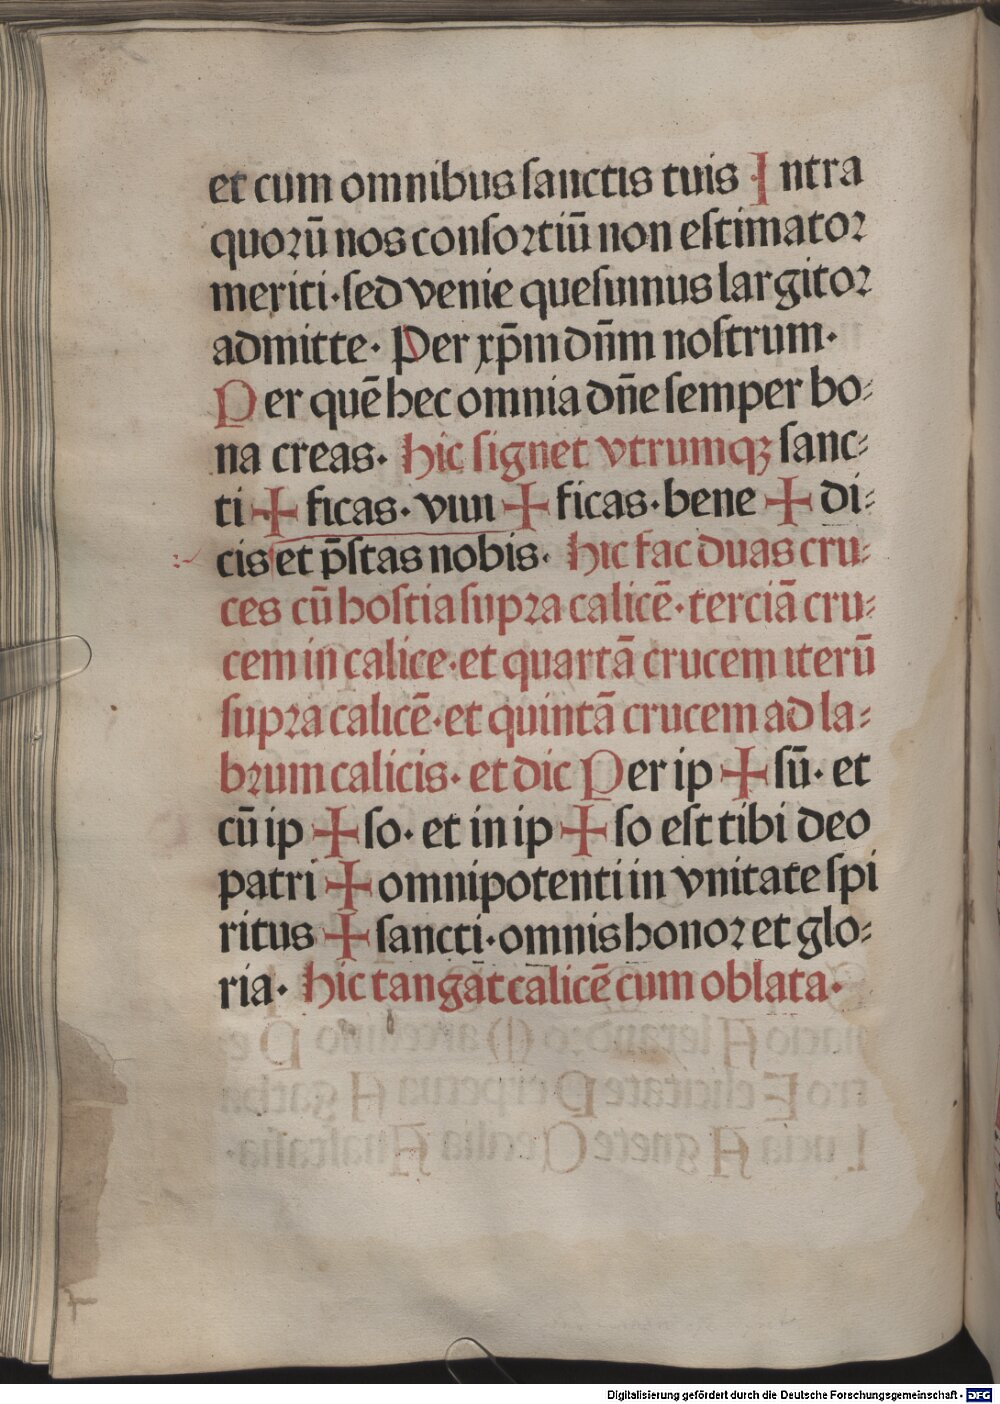 et cum omnibus sanctis tuis Intra
quorū nos consortiū non estimator
meriti·sed venie quesumus largitor
admitte· Per xp̄m dn̄m nostrum·
Per quē hec omnia dn̄e semper bo-
na creas· hic signet vtrumqꝫ sanc-
ti ✚ ficas·viui ✚ ficas·bene ✚ di-
cis et p̄stas nobis· hic fac duas cru-
ces cū hostia supra calicē·terciā cru-
cem in calice·et quartā crucem iterū
supra calicē·et quintā crucem ad la-
brum calicis· et dic Per ip ✚ sū· et
cū ip ✚ so· et in ip ✚ so est tibi deo
patri ✚ omnipotenti in vnitate spi
ritus ✚ sancti·omnis honor et glo-
ria· hic tangāt calicē cum oblata·
Digitalisierung gefördert durch die Deutsche Forschungsgemeinschaft - DFG